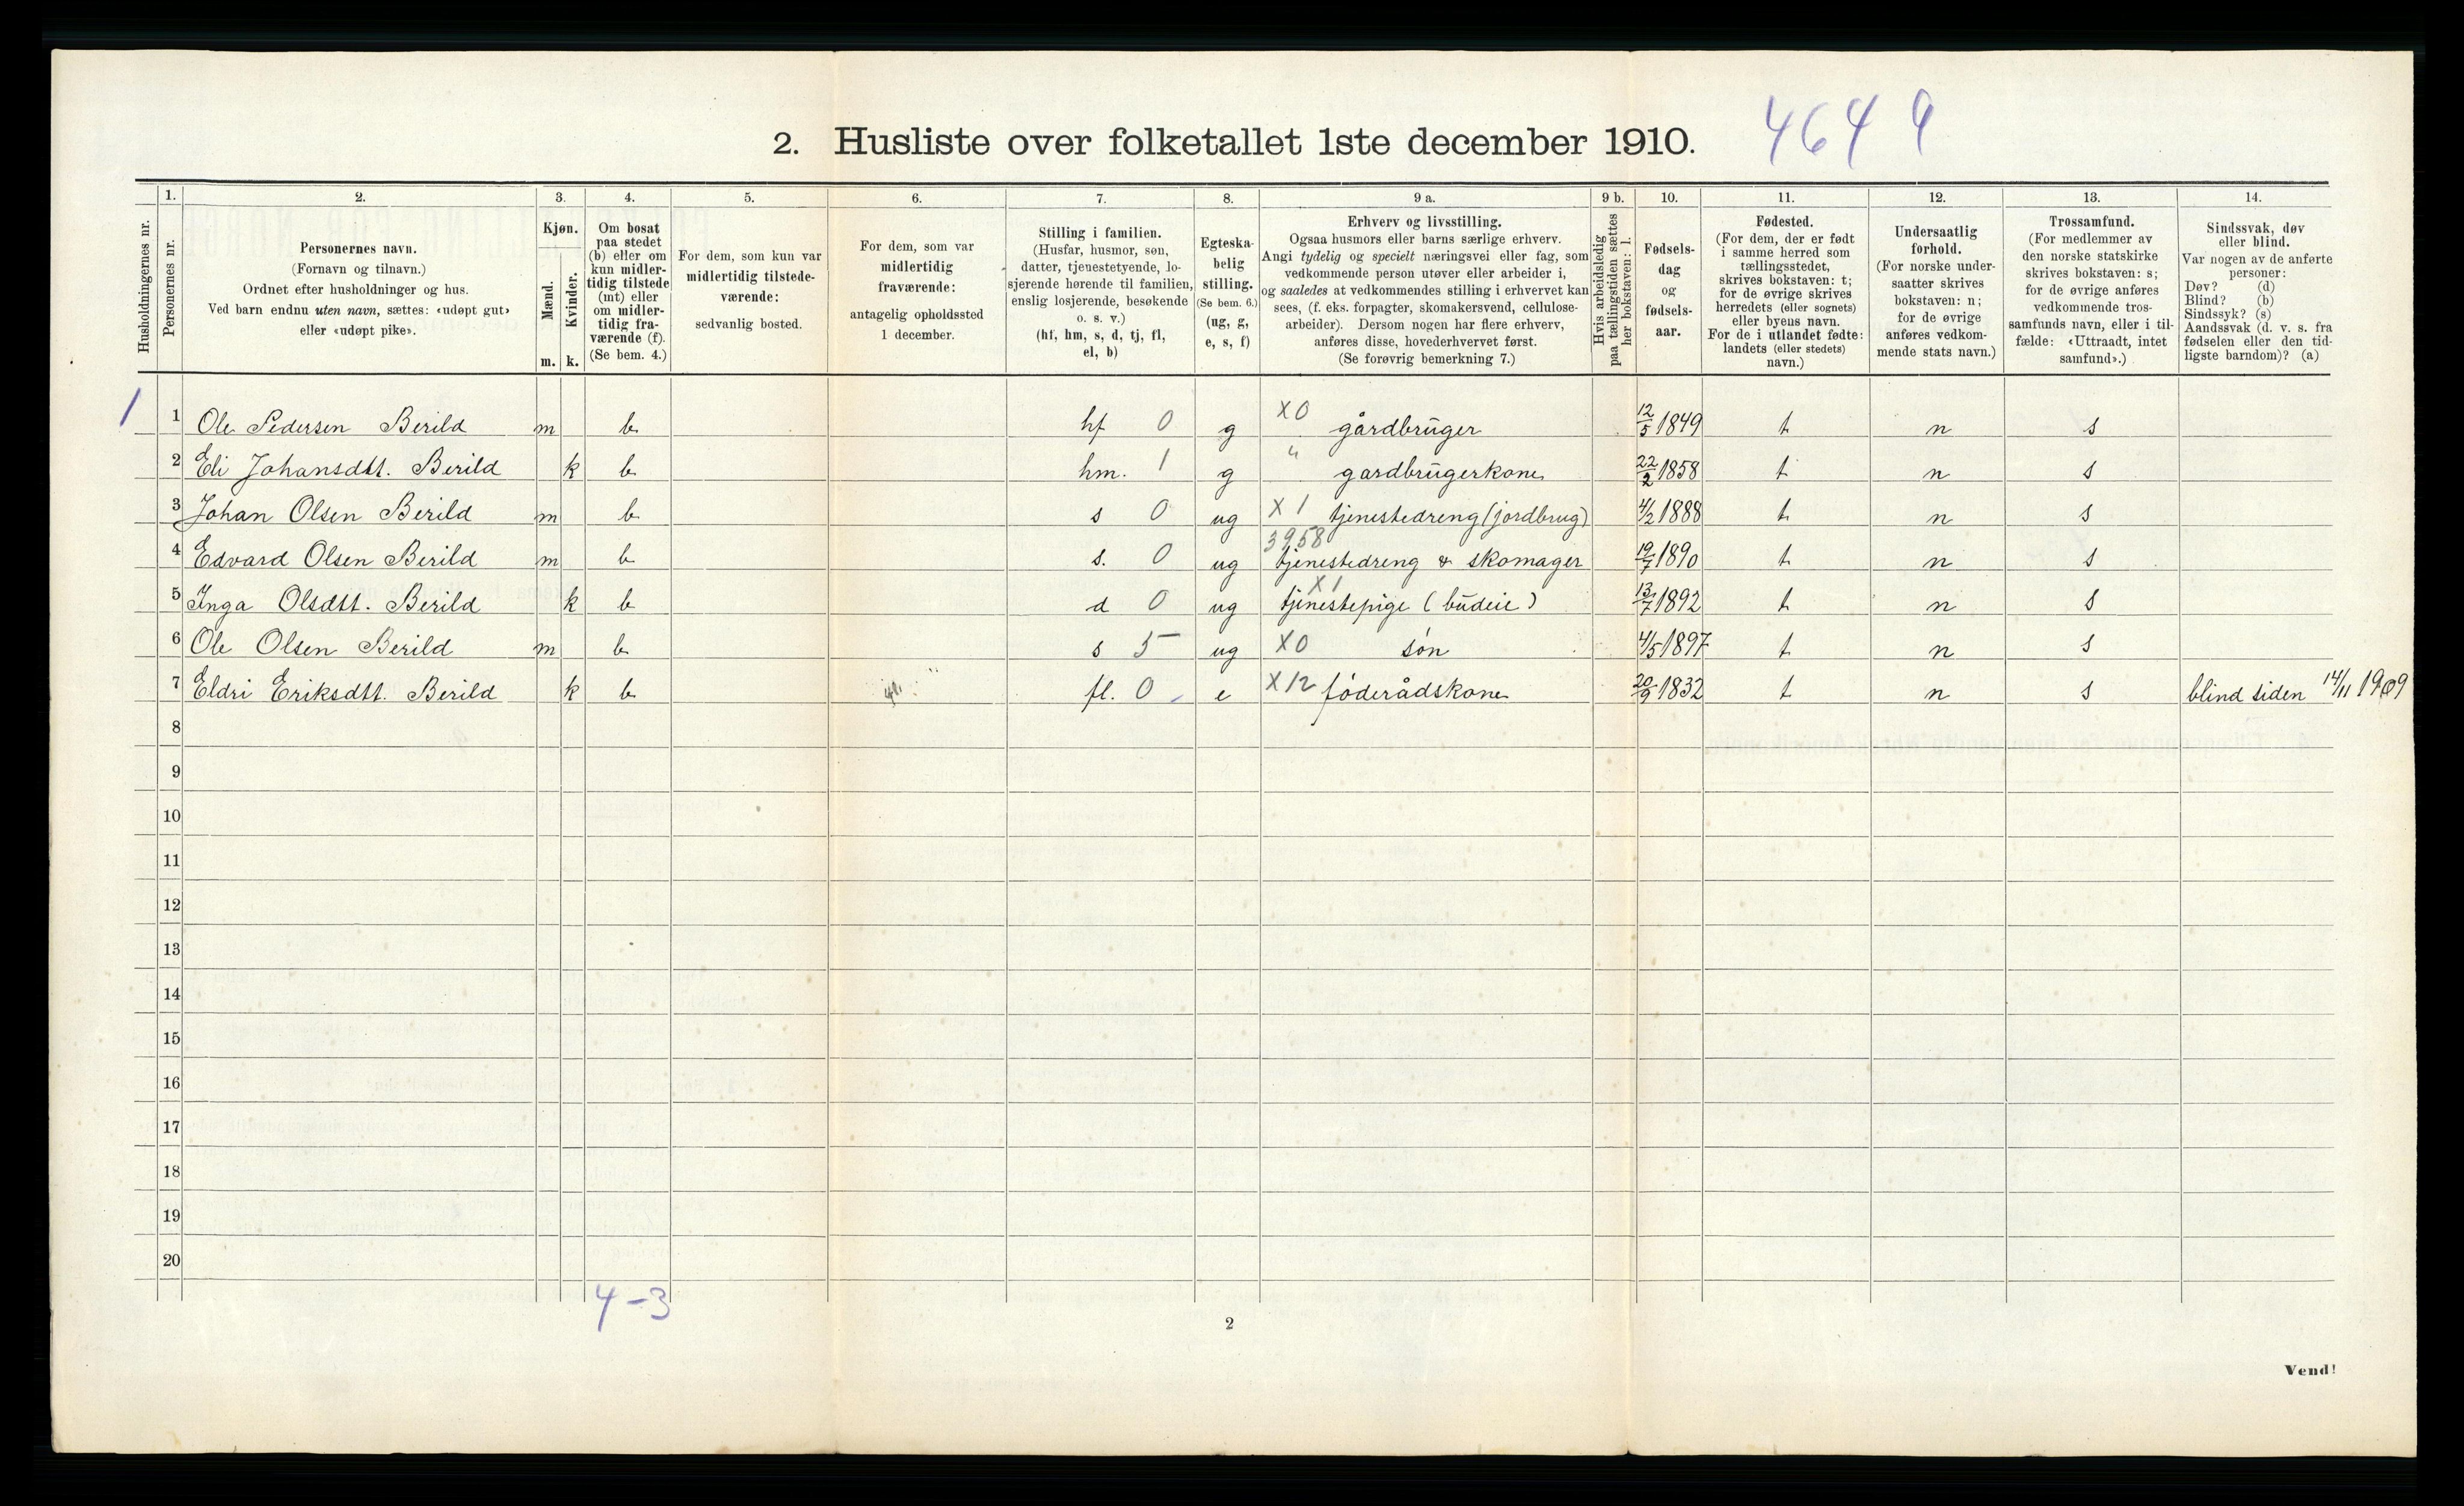 4649
2. Husliste over folketallet 1ste december 1910.
Husholdningernes nr.
1.
Personernes nr.
2.
Personernes navn.
(Fornavn og tilnavn.)
Ordnet efter husholdninger og hus.
Ved barn endnu uten navn, sættes: «udøpt gut»
eller «udøpt pike».
3.
Kjøn.
Mænd.
Kvinder.
m. k.
4.
Om bosat
paa stedet
(b) eller om
kun midler-
tidig tilstede
(mt) eller
om midler-
tidig fra-
værende (f).
(Se bem. 4.)
5.
For dem, som kun var
midlertidig tilstede-
værende:
sedvanlig bosted.
6.
For dem, som var
midlertidig
fraværende:
antagelig opholdssted
1 december.
7.
Stilling i familien.
(Husfar, husmor, søn,
datter, tjenestetyende, lo-
sjerende hørende til familien,
enslig losjerende, besøkende
o. s. v.)
(hf, hm, s, d, tj, fl,
el, b)
8.
Egteska-
belig
stilling.
(Se bem. 6.)
(ug, g,
e, s, f)
9 a.
Erhverv og livsstilling.
Ogsaa husmors eller barns særlige erhverv.
Angi tydelig og specielt næringsvei eller fag, som
vedkommende person utøver eller arbeider i,
og saaledes at vedkommendes stilling i erhvervet kan
sees, (f. eks. forpagter, skomakersvend, cellulose-
arbeider). Dersom nogen har flere erhverv,
anføres disse, hovederhvervet først.
(Se forøvrig bemerkning 7.)
9 b.
Hvis arbeidsledig
paa tællingstiden sættes
her bokstaven: l.
10.
Fødsels-
dag
og
fødsels-
aar.
11.
Fødested.
(For dem, der er født
i samme herred som
tællingsstedet,
skrives bokstaven: t;
for de øvrige skrives
herredets (eller sognets)
eller byens navn.
For de i utlandet fødte:
landets (eller stedets)
navn.)
12.
Undersaatlig
forhold.
(For norske under-
saatter skrives
bokstaven: n;
for de øvrige
anføres vedkom-
mende stats navn.)
13.
Trossamfund.
(For medlemmer av
den norske statskirke
skrives bokstaven: s;
for de øvrige anføres
vedkommende tros-
samfunds navn, eller i til-
fælde: «Uttraadt, intet
samfund».)
14.
Sindssvak, døv
eller blind.
Var nogen av de anførte
personer:
Døv? (d)
Blind? (b)
Sindssyk? (s)
Aandssvak (d. v. s. fra
fødselen eller den tid-
ligste barndom)? (a)
1 1 Ole Pedersen Berild m b hf 0 g X0 gårdbruger 12/5 1849 t n s
2 Eli Johansdtt. Berild k b hm. 1 g " gardbrugerkone 22/2 1858 t n s
3 Johan Olsen Berild m b s 0 ug X 1 tjenestedreng (jordbrug) 4/2 1888 t n s
4 Edvard Olsen Berild m b s. 0 ug 3958 tjenestedreng & skomager 19/7 1890 t n s
5 Inga Olsdtt. Berild k b d 0 ug X1 tjenestepige (budeie) 13/7 1892 t n s
6 Ole Olsen Berild m b s 5 ug X0 søn 4/5 1897 t n s
7 Eldri Eriksdtt. Berild k b fl. 0 e X12 føderådskone 20/9 1832 t n s blind siden 14/11 1909
8
9
10
11
12
13
14
15
16
17
18
19
20
4-3
2
Vend!